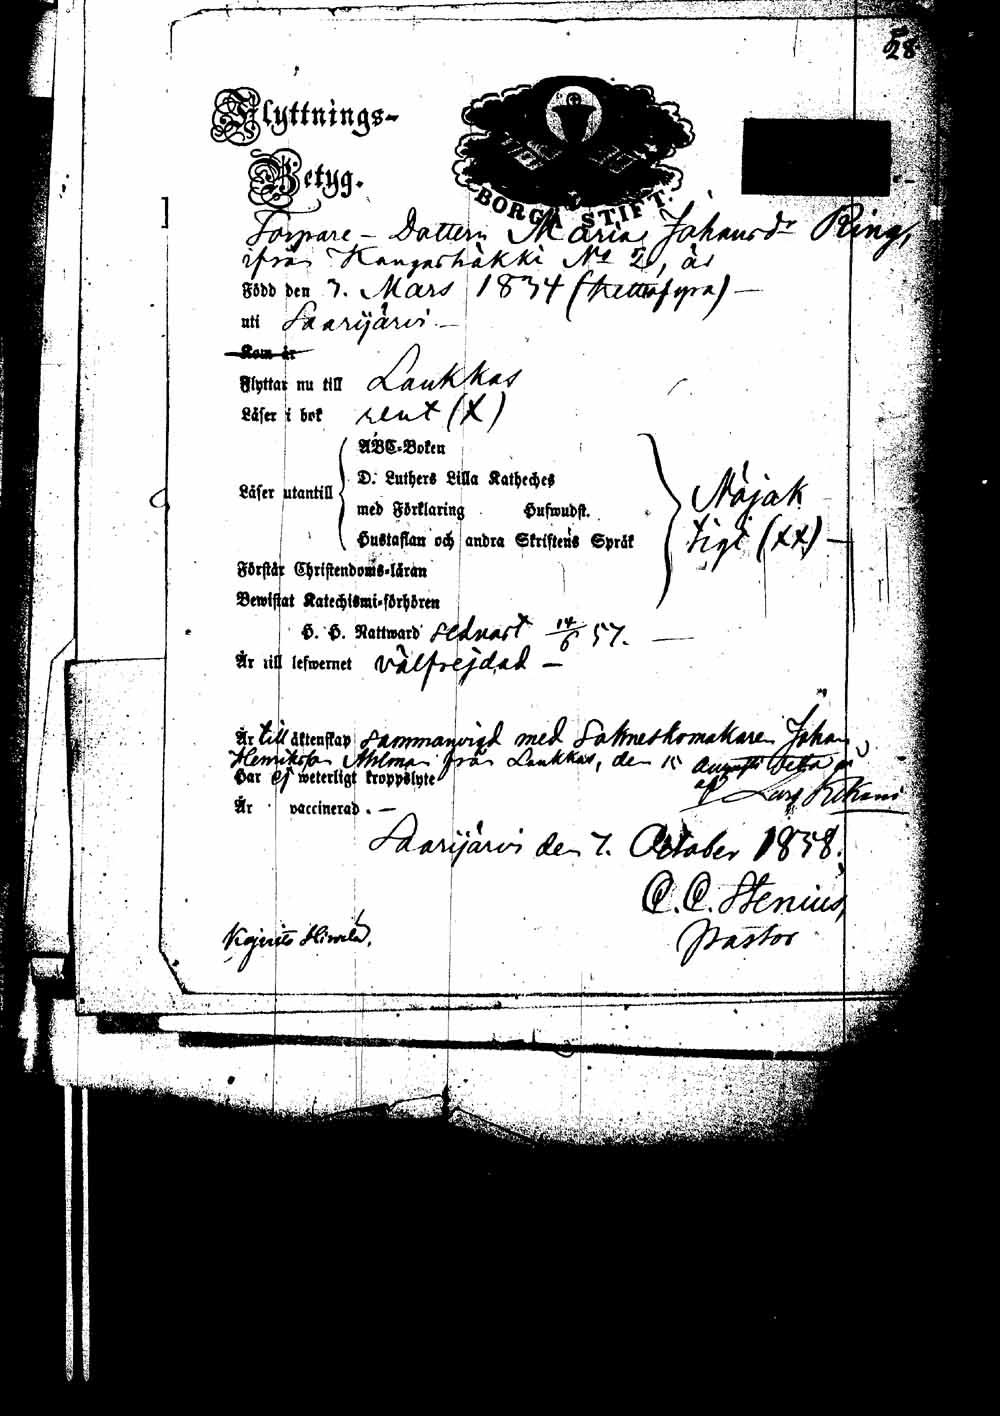 28
Flyttnings-
Betyg.
BORGÅ STIFT.
Torpare-Dottern Maria Johansdr Ring,
ifrån Kangashäkki No 2, är
Född den 7. Mars 1834 (trettiofyra) —
uti Saarijärvi. —
Kom är
Flyttar nu till Laukkas
Läser i bok rent (X)
Läser utantill
ABC-Boken
D. Luthers Lilla Katheches
med Förklaring Hufwudst.
Hustaflan och andra Skriftens Språk
Nöjak
tigt (XX) —
Förstår Christendoms-läran
Bewistat Katechismi-förhören
H. H. Nattward sednast 14/6 57. —
Är till lefwernet välfrejdad —
Är till äktenskap sammanvigd med Sockneskomakaren Johan
Henriksson Ahlman från Laukkas, den 15 Augusti detta år
af Lars
Har ej weterligt kroppslyte
Är vaccinerad. —
Saarijärvi den 7. October 1858.
C. C. Stenius,
Pastor